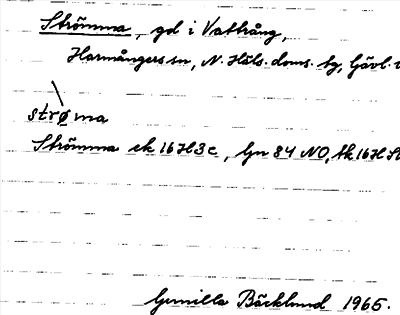 Strömma, gd i Vattrång,
Harmångers sn, N. Häls. doms. tg, Gävl.
strøma
Strömma ek 16H3c, Gn 84 NO, tk 16H
Gunilla Bäcklund 1965.